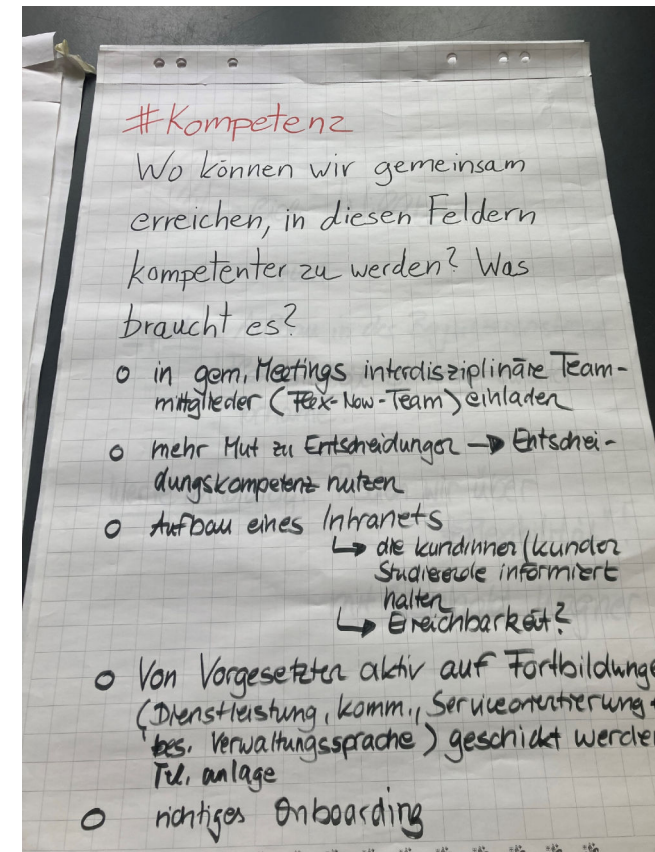 #Kompetenz
Wo können wir gemeinsam
erreichen, in diesen Feldern
kompetenter zu werden? Was
braucht es?
o in gem. Meetings interdisziplinäre Team-
mitglieder (Flex-Now-Team) einladen
o mehr Mut zu Entscheidungen → Entschei-
dungskompetenz nutzen
o Aufbau eines Intranets
↳ die Kundinnen/Kunden
Studierende informiert
halten
↳ Ereichbarkeit?
o Von Vorgesetzten aktiv auf Fortbildunge
(Dienstleistung, Komm., Serviceorientierung +
bes. Verwaltungssprache) geschickt werde
Tel. anlage
o richtiges Onboarding